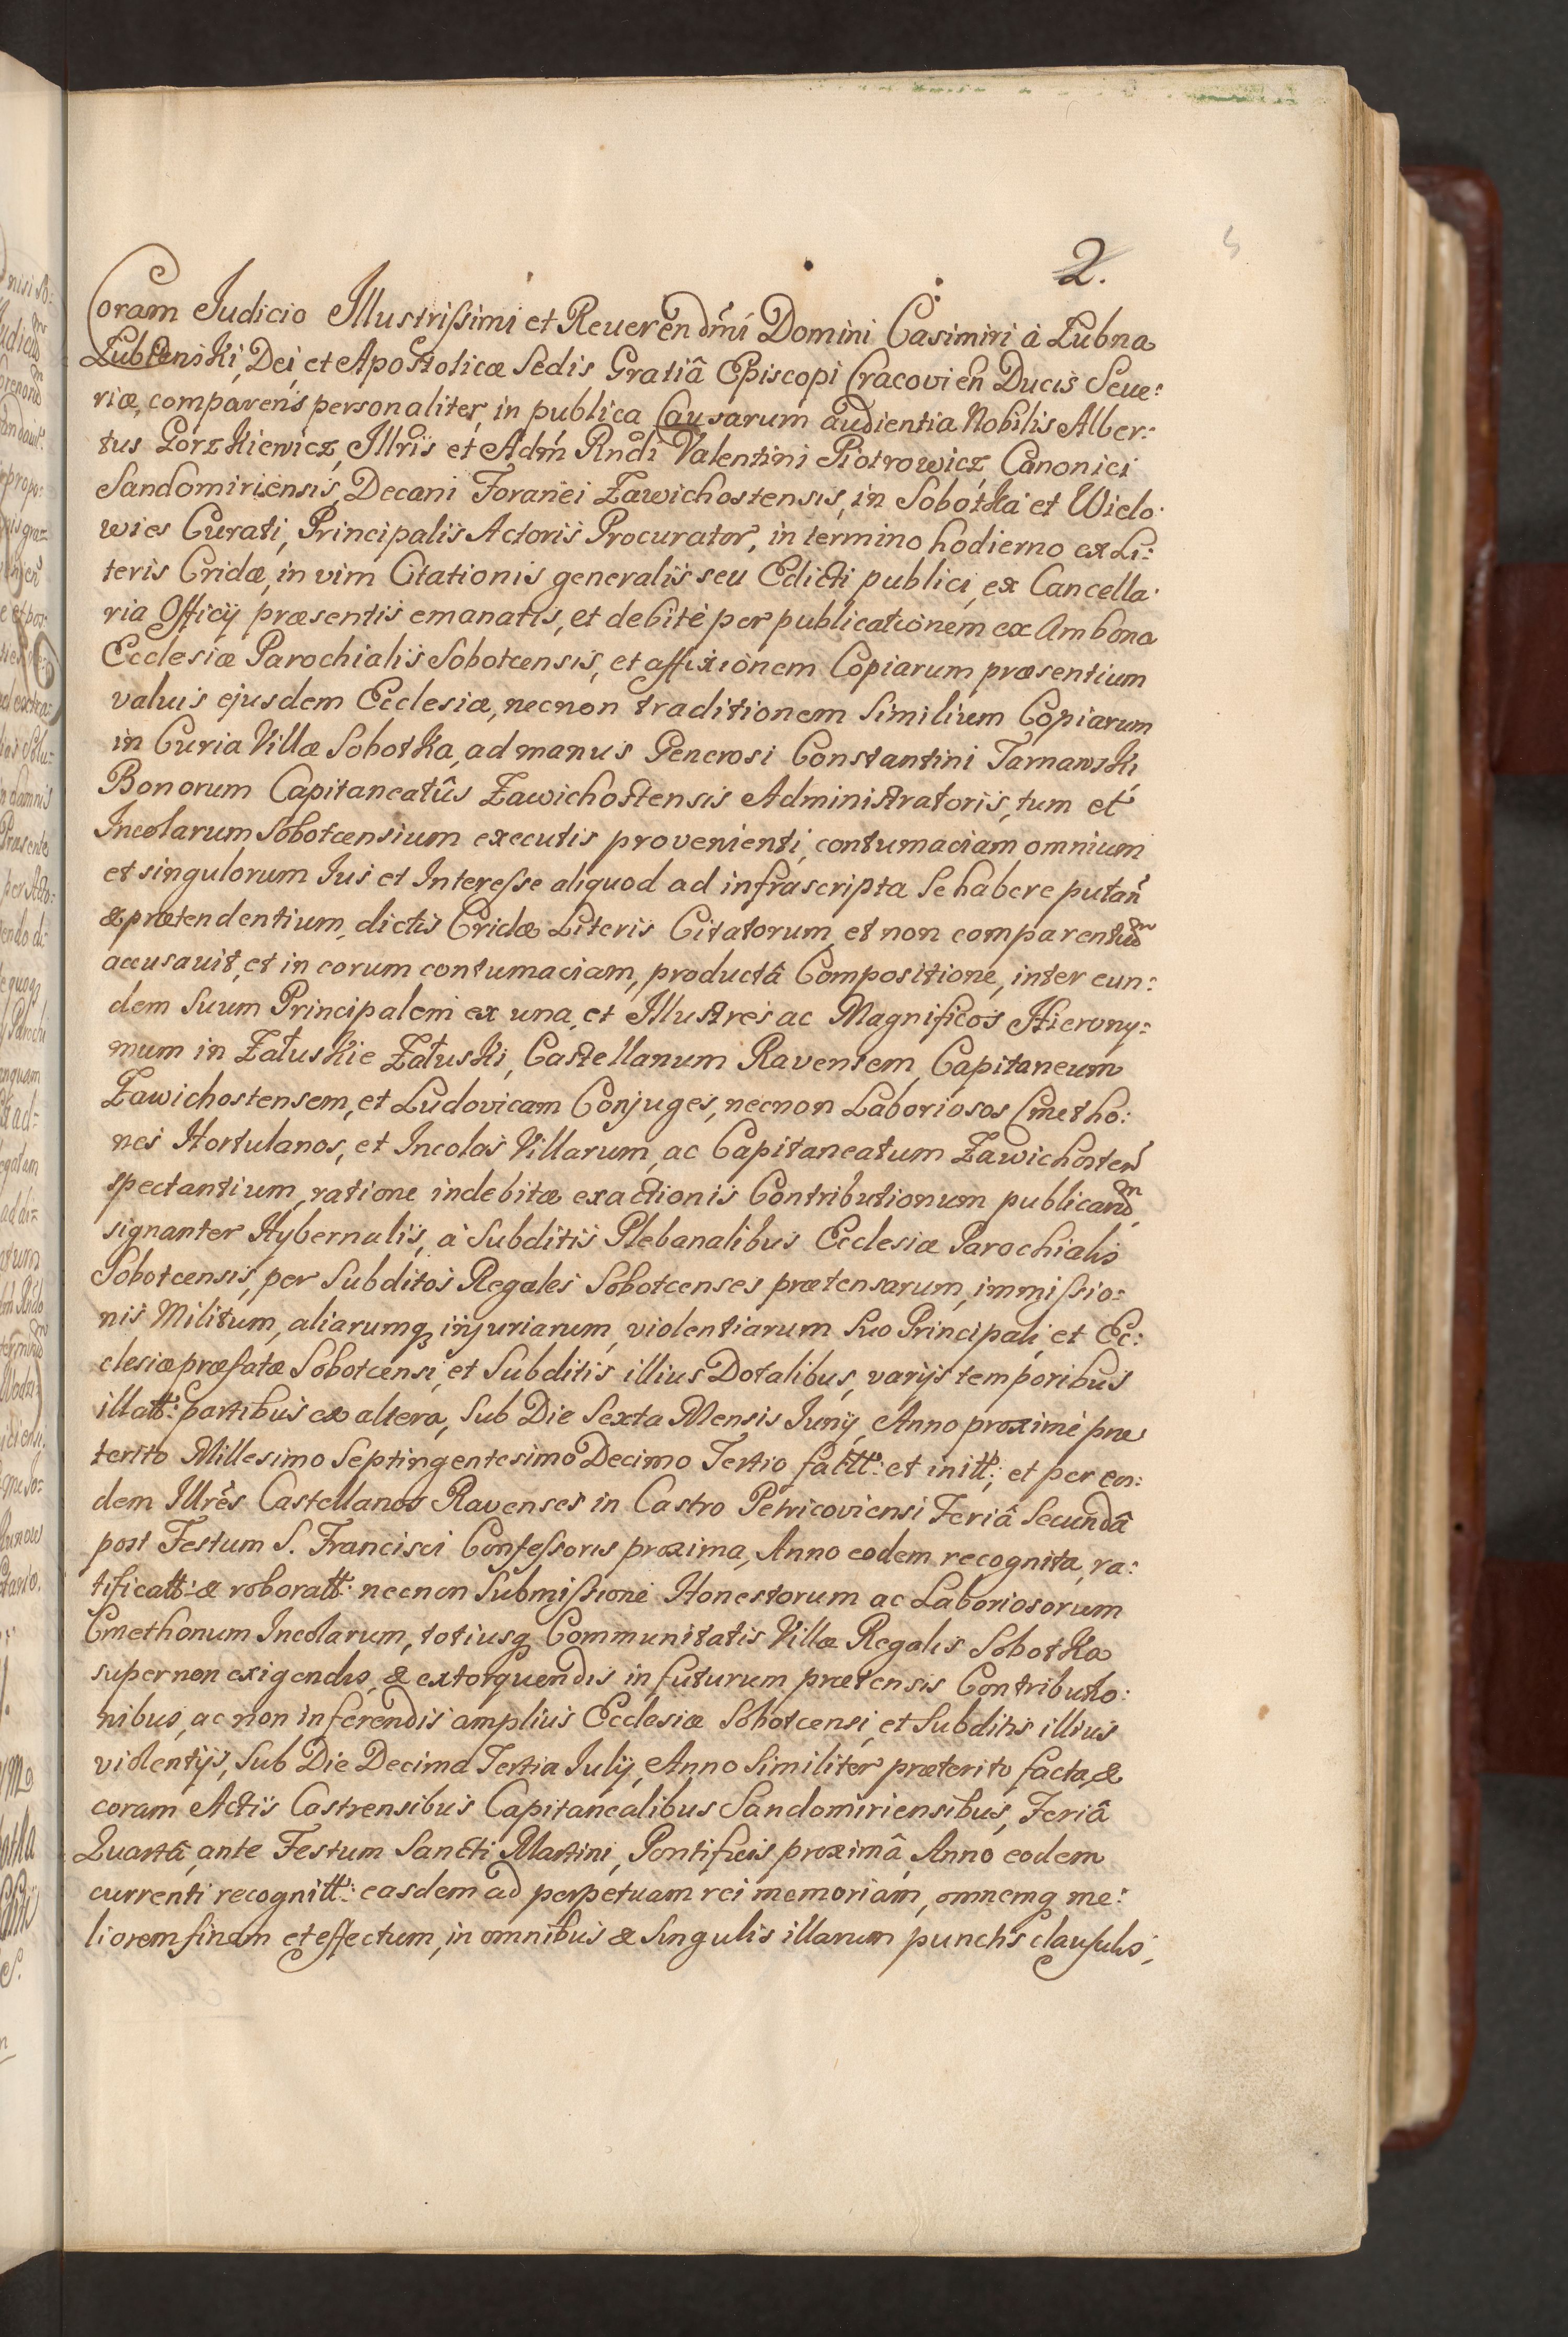 2.
Coram Judicio Illustrissimi et Reuerendmi Domini Casimiri à Łubna
Łubieniski, Dei et Apostolicæ Sedis Gratiâ Episcopi Cracovien Ducis Seue:
riæ, comparens personaliter, in publica Causarum audientia Nobilis Alber:
tus Gorzkiewicz, Illris et Adm Rndi Valentini Piotrowicz Canonici
Sandomiriensis, Decani Foranei Zawichostensis, in Sobotka et Wielo:
wies Curati, Principalis Actoris Procurator, in termino hodierno ex Li:
teris Cridæ, in vim Citationis generalis seu Edicti publici, ex Cancella:
ria Officij præsentis emanatis, et debitè per publicationem ex Ambona
Ecclesiæ Parochialis Sobotcensis, et affixionem Copiarum præsentium
valuis ejusdem Ecclesiæ, necnon traditionem Similium Copiarum
in Curia Villæ Sobotka, ad manus Generosi Constantini Tarnawski
Bonorum Capitaneatûs Zawichostensis Administratoris, tum et
Incolarum Sobotcensium executis provenienti, contumaciam omnium
et singulorum Ius et Interesse aliquod ad infrascripta Se habere putan
& prætendentium, dictis Cridæ Literis Citatorum, et non comparentium
accusauit, et in eorum contumaciam, productâ Compositione, inter eun:
dem Suum Principalem ex una, et Illustres ac Magnificos Hierony:
mum in Załuskie Załuski, Castellanum Ravensem, Capitaneum
Zawichostensem, et Ludovicam Conjuges, necnon Laboriosos Cmetho:
nes Hortulanos, et Incolas Villarum, ac Capitaneatum Zawichosten
spectantium, ratione indebitæ exactionis Contributionum publicarum
signanter Hybernalis, à Subditis Plebanalibus Ecclesiæ Parochialis
Sobotcensis, per Subditos Regales Sobotcenses prætensarum, immissio:
nis Militum, aliarumq injuriarum, violentiarum Suo Principali, et Ec:
clesiæ præfatæ Sobotcensi, et Subditis illius Dotalibus, varijs temporibus
illatt: partibus ex altera, Sub Die Sexta Mensis Iunij, Anno proximè præ
terito Millesimo Septingentesimo Decimo Tertio factt: et initt:, et per eos:
dem Illres Castellanos Ravenses in Castro Petricoviensi Feriâ Secundâ
post Festum S. Francisci Confessoris proxima, Anno eodem recognita, ra:
tificatt: & roboratt: necnon Submissione Honestorum ac Laboriosorum
Cmethonum Incolarum, totiusq Communitatis Villæ Regalis Sobotka
super non exigendis, & extorquendis in futurum prætensis Contributio:
nibus, ac non inferendis amplius Ecclesiæ Sobotcensi, et Subditis illius
violentijs, Sub Die Decima Tertia Iulij, Anno Similiter præterito facta, &
coram Actis Castrensibus Capitanealibus Sandomiriensibus, Feriâ
Quartâ ante Festum Sancti Martini, Pontificis proximâ, Anno eodem
currenti recognitt: easdem ad perpetuam rei memoriam, omnemq me:
liorem finem et effectum, in omnibus & Singulis illarum punctis clausulis,